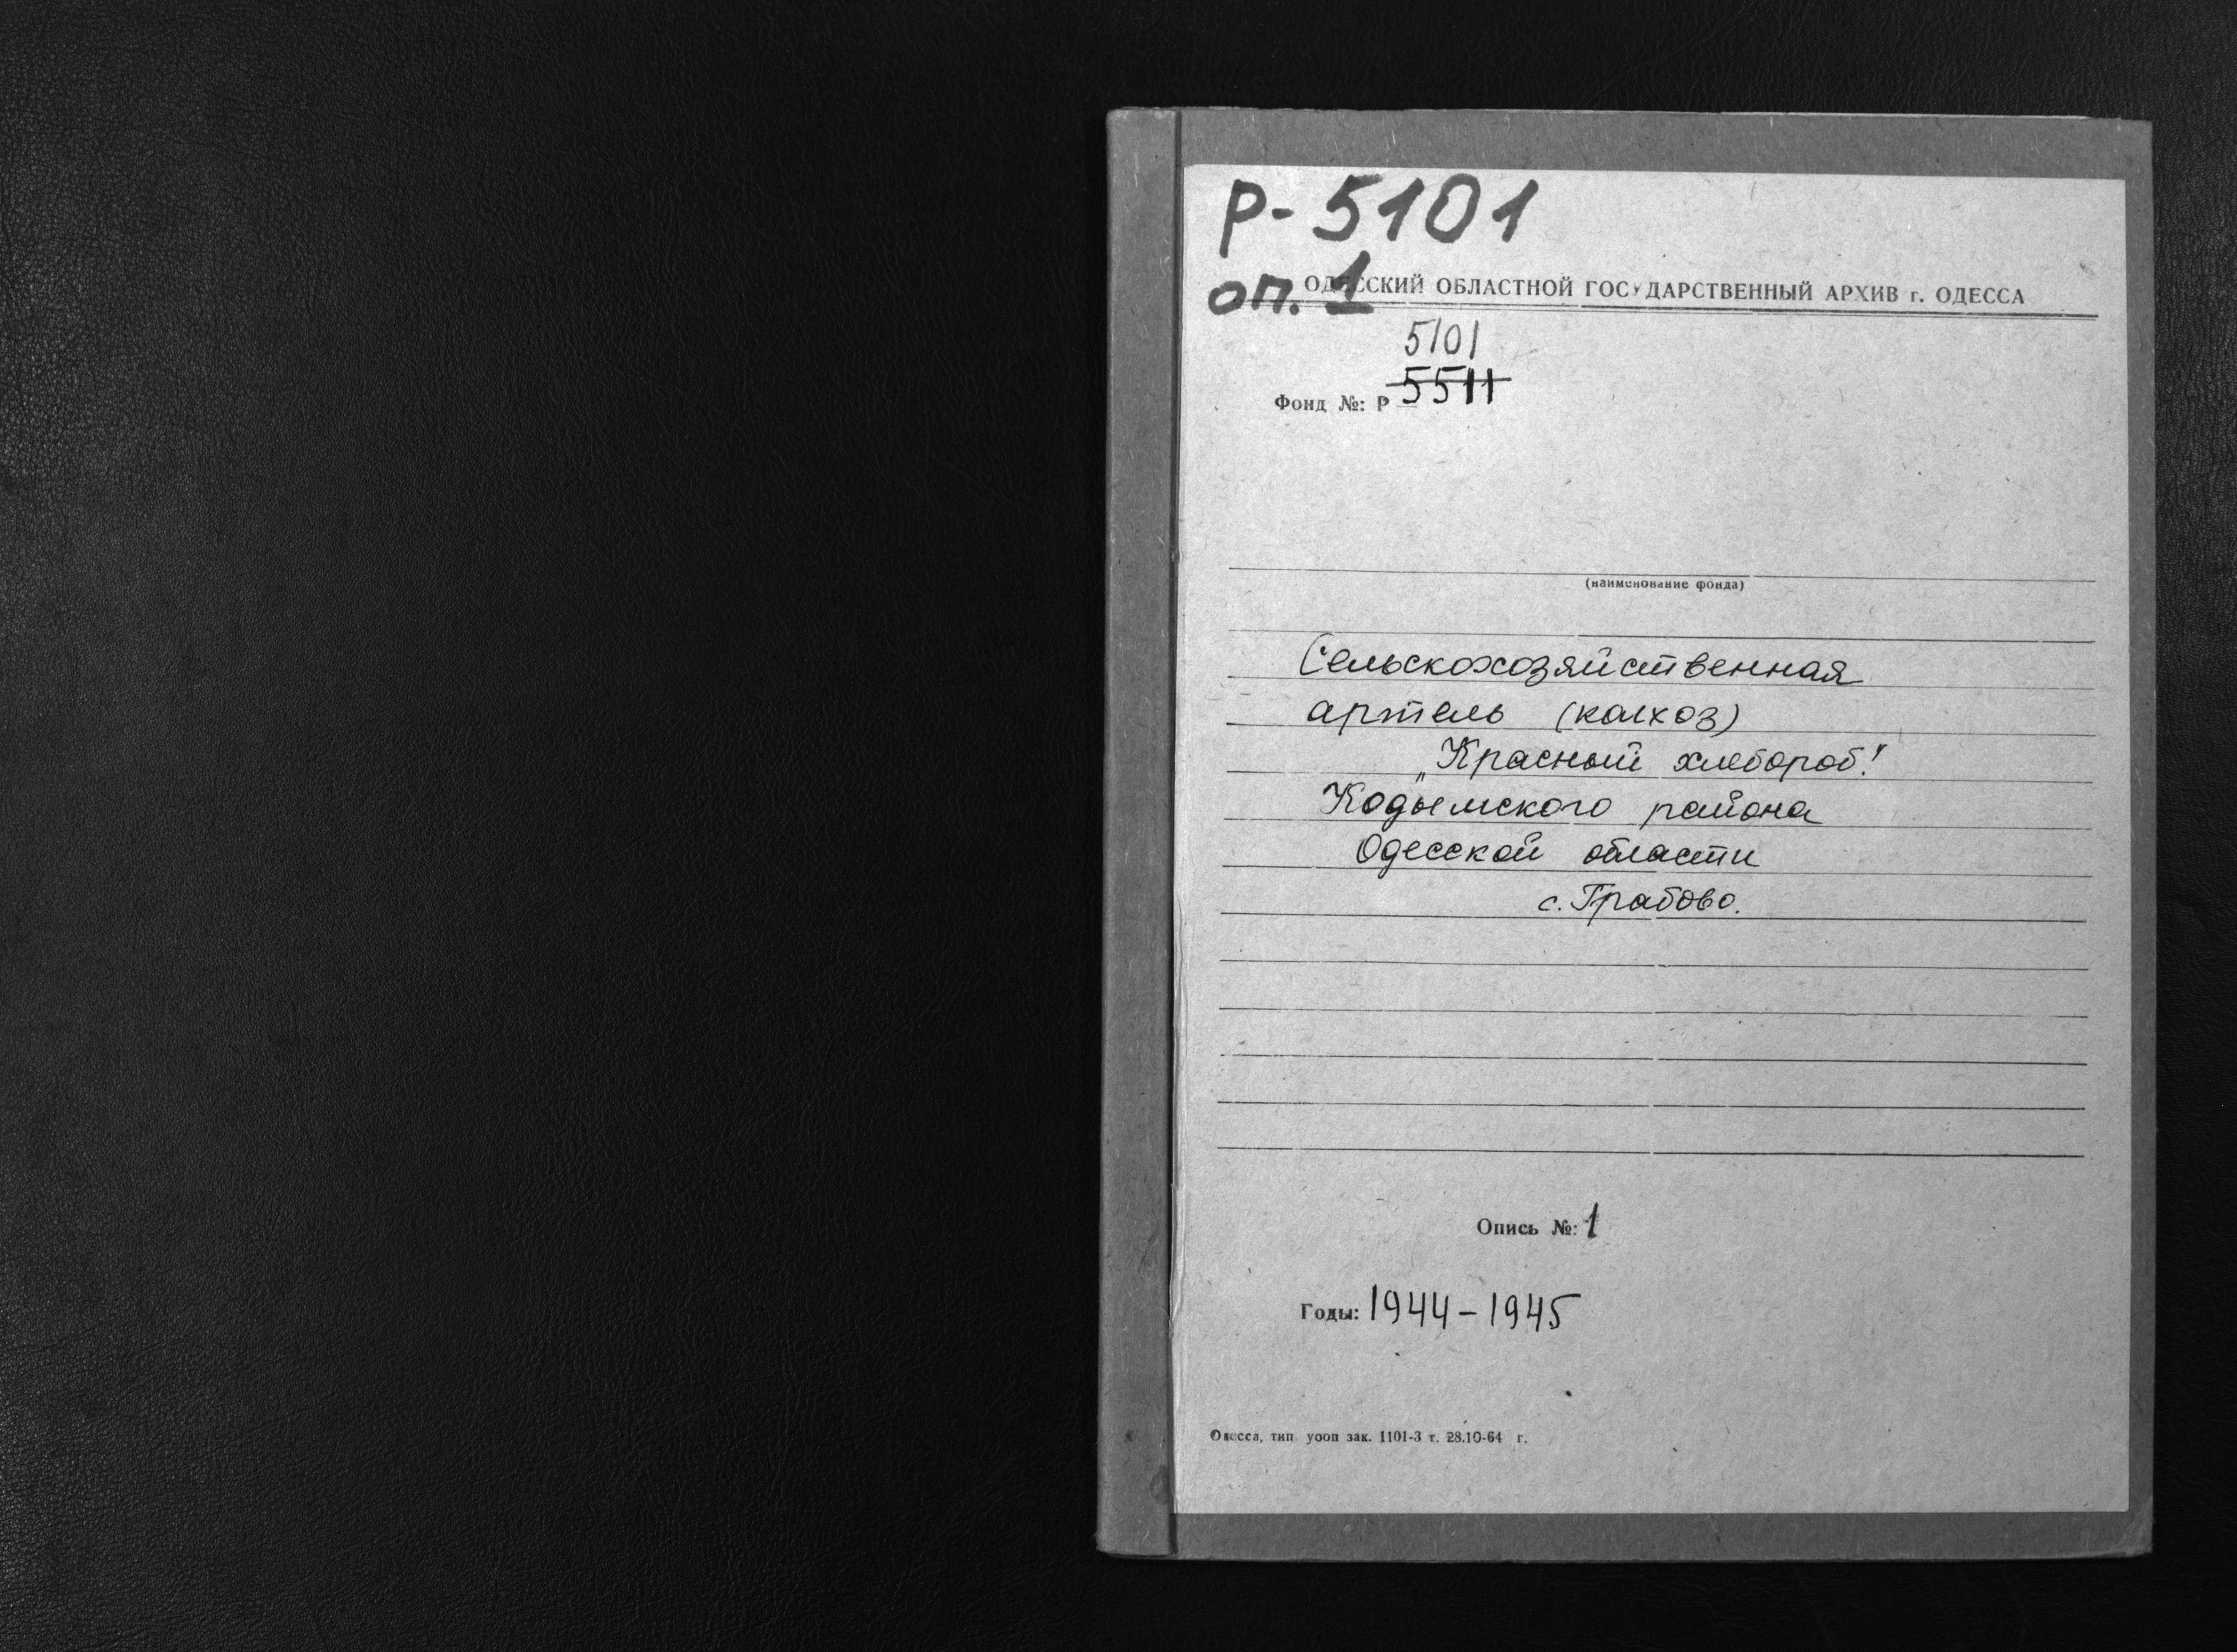 Р-5101
оп. 1
ОДЕССКИЙ ОБЛАСТНОЙ ГОСУДАРСТВЕННЫЙ АРХИВ г. ОДЕССА
5101
Фонд №: Р 5511
(наименование фонда)
Сельскохозяйственная
артель (колхоз)
„Красный хлебороб"
Кодымского района
Одесской области
с. Грабово.
Опись №: 1
Годы: 1944-1945
Одесса, тип. уооп зак. 1101-3 т. 28.10-64 г.